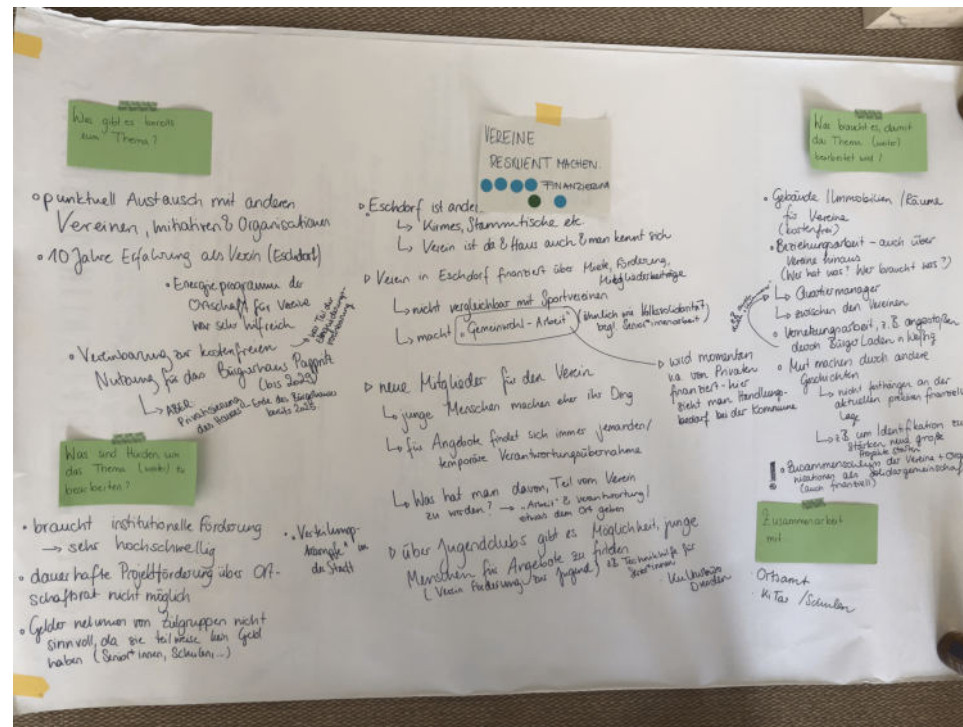 Was gibt es bereits
zum Thema?
• punktuell Austausch mit anderen
Vereinen, Initiativen & Organisationen
• 10 Jahre Erfahrung als Verein (Eschdorf)
• Energieprogramm der
Ortschaft für Vereine
war sehr hilfreich
→ war Teil der
Eingliederungs-
vereinbarung
• Vereinbarung zur kostenfreien
Nutzung für das Bürgerhaus Pappritz
(bis 2029)
↳ ABER
Privatisierung
des Hauses
Ende des Bürgerhauses
bereits 2025
Was sind Hürden, um
das Thema (weiter) zu
bearbeiten?
• braucht institutionelle Förderung
→ sehr hochschwellig
• dauerhafte Projektförderung über Ort-
schaftsrat nicht möglich
• Gelder nehmen von Zielgruppen nicht
sinnvoll, da sie teilweise kein Geld
haben (Senior*innen, Schulen,...)
• "Verteilungs-
kämpfe" in
der Stadt
VEREINE
RESILIENT MACHEN.
FINANZIERUNG
▷ Eschdorf ist
↳ Kirmes, Stammtische etc.
↳ Verein ist da & Haus auch & man kennt sich
▷ Verein in Eschdorf finanziert über Miete, Förderung,
Mitgliederbeiträge
↳ nicht vergleichbar mit Sportvereinen
↳ macht "Gemeinwohl-Arbeit" (ähnlich wie Volkssolidarität
bezgl. Senior*innenarbeit)
→ wird momentan
v.a. von Privaten
finanziert - hier
sieht man Handlungs-
bedarf bei der Kommune
▷ neue Mitglieder für den Verein
↳ junge Menschen machen eher ihr Ding
↳ für Angebote findet sich immer jemanden/
temporäre Verantwortungsübernahme
↳ Was hat man davon, Teil vom Verein
zu werden? → "Arbeit" & Verantwortung/
etwas dem Ort geben
▷ über Jugendclubs gibt es Möglichkeit, junge
Menschen für Angebote zu finden
(Verein Förderung der Jugend) z.B. Technikhilfe für
Senior*innen
Dresden
Was braucht es, damit
das Thema (weiter)
bearbeitet wird?
• Gebäude / Immobilien / Räume
für Vereine
(kostenfrei)
• Beziehungsarbeit - auch über
Vereine hinaus
(Wer hat was? Wer braucht was?)
↳ Quartiermanager
↳ zwischen den Vereinen
• Vernetzungsarbeit, z.B. angestoßen
durch Bürgerladen in Weißig
• Mut machen durch andere
Geschichten
↳ nicht festhängen an der
aktuellen prekären finanziellen
Lage
↳ z.B. um Identifikation zu
stärken neue große
Projekte starten
! • Zusammenschluss der Vereine + Orga-
nisationen als Solidargemeinschaft
(auch finanziell)
Zusammenarbeit
mit
• Ortsamt
• KiTas / Schulen